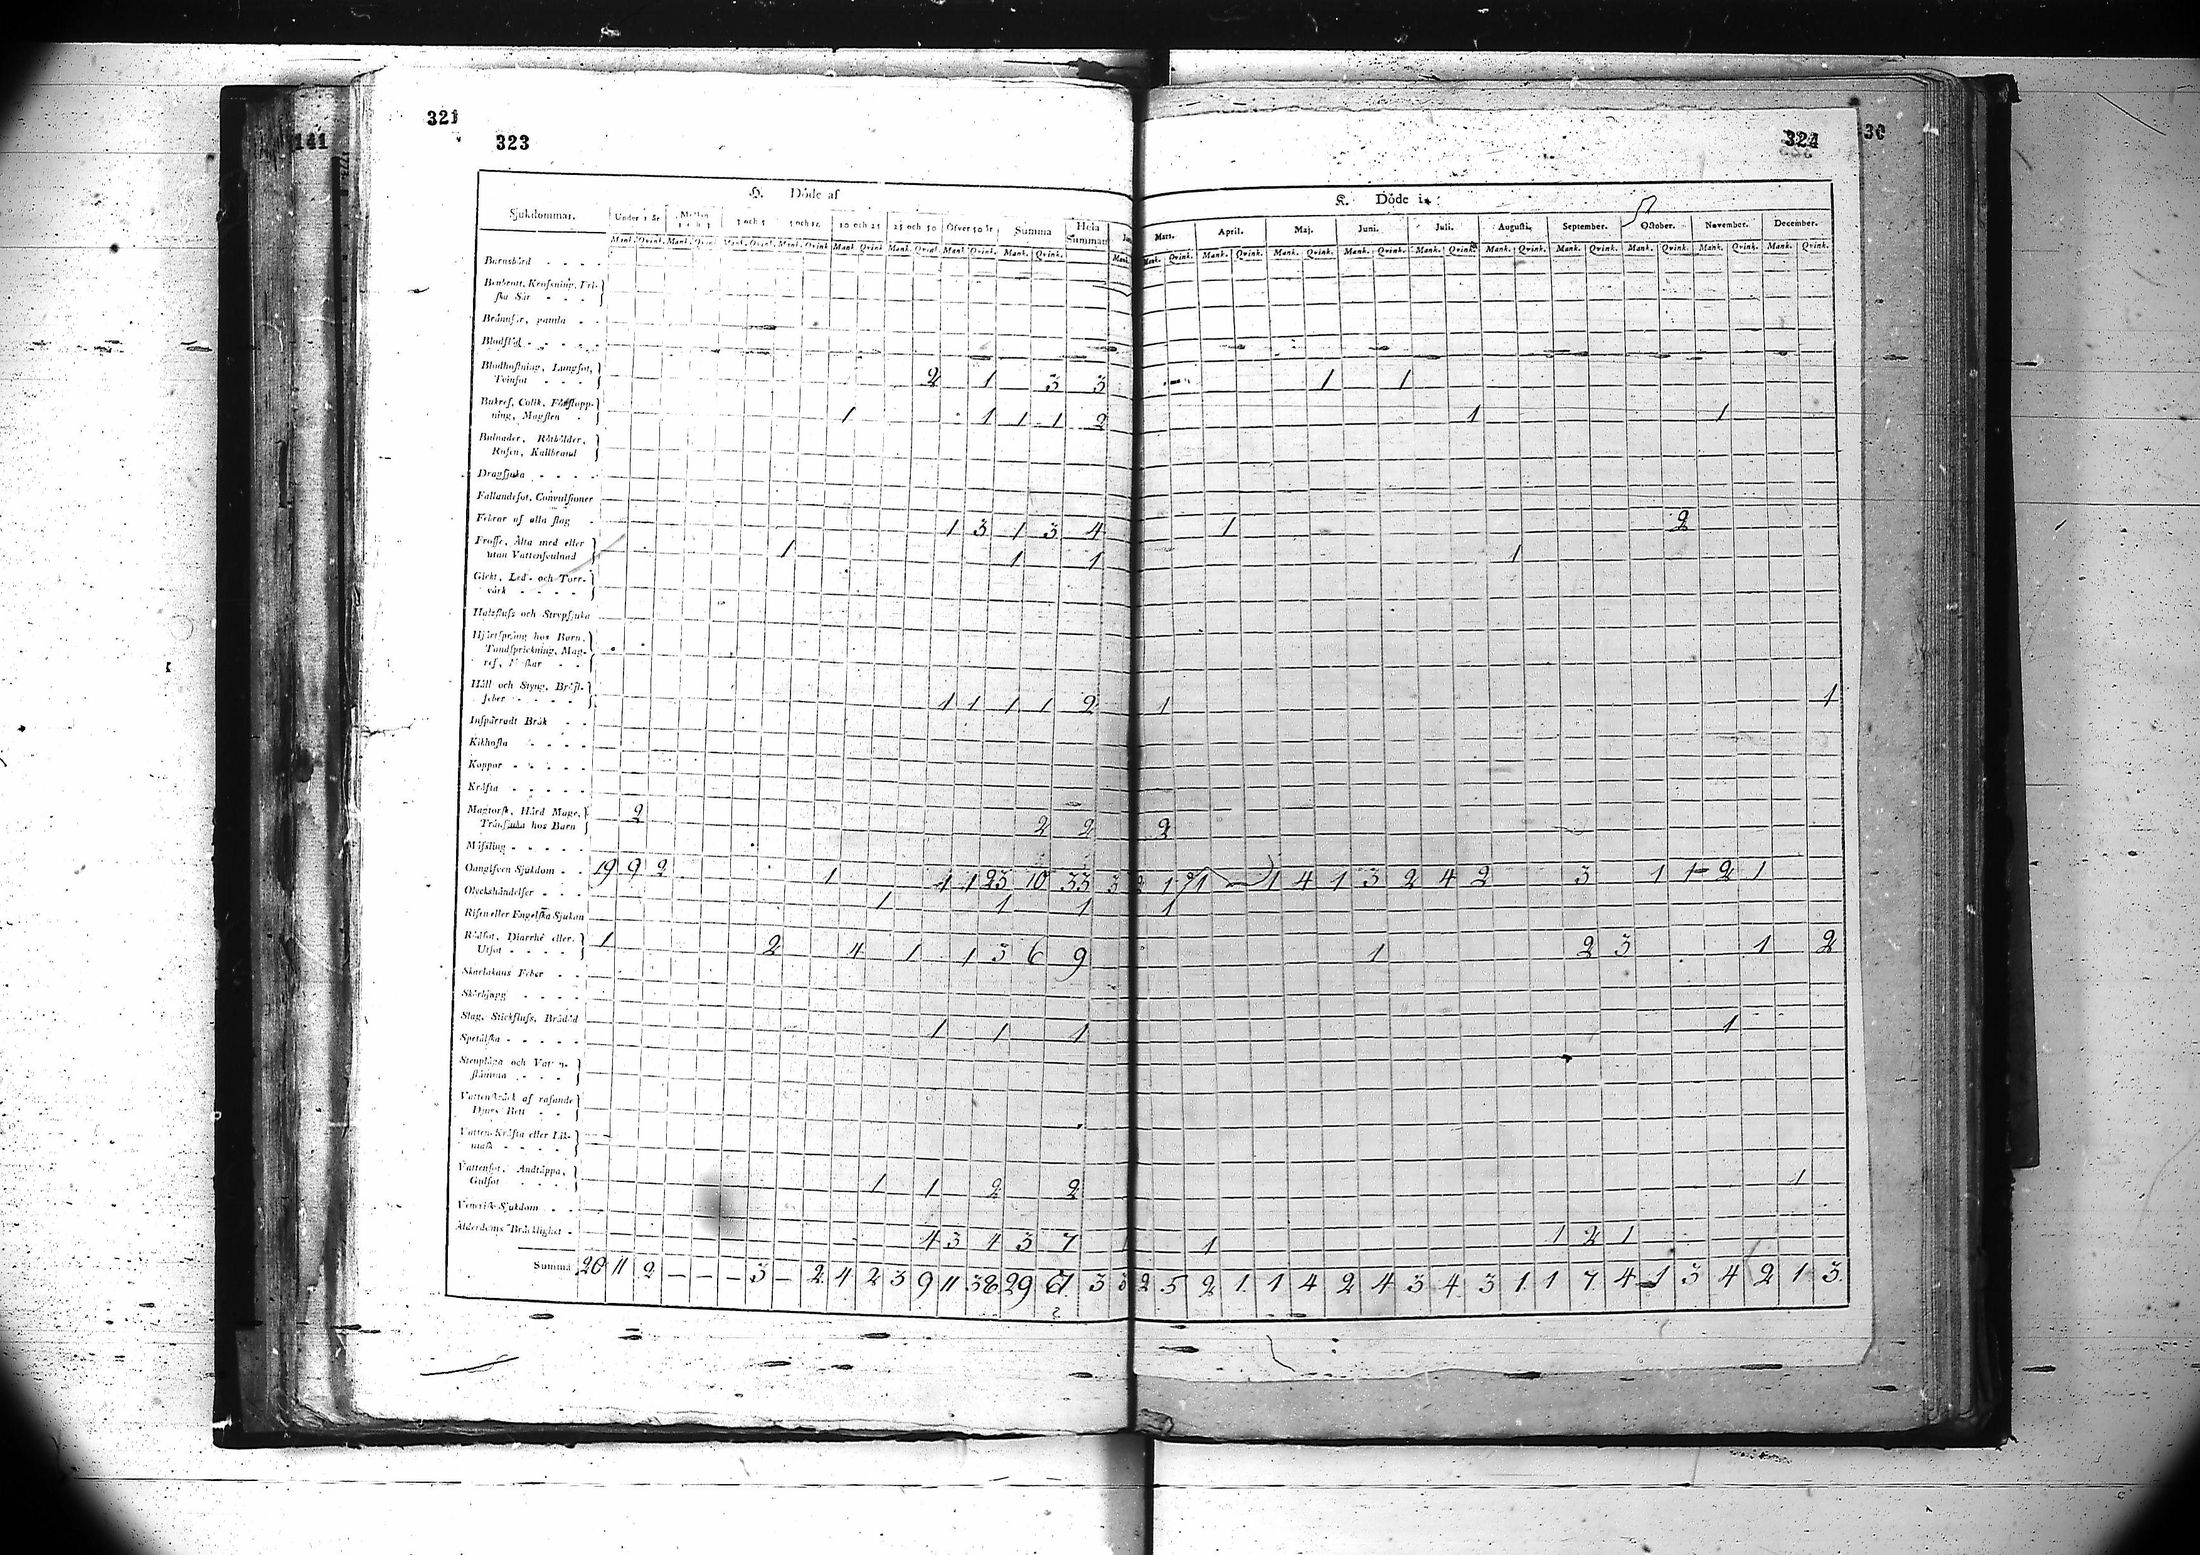 141
321
323
324
30
H. Döde af
K. Döde i
Sjukdommar.
Under 1 år
Mellan
10 och 25
25 och 50
Öfver 50 år
Summa
Hela Summan
Mars.
April.
Maj.
Juni.
Juli.
Augusti.
September.
October.
November.
December.
Mank. Qvink. Mank. Qvink. Mank. Qvink. Mank. Qvink. Mank. Qvink. Mank. Qvink. Mank. Qvink. Mank. Qvink.
Mank. Qvink. Mank. Qvink. Mank. Qvink. Mank. Qvink. Mank. Qvink. Mank. Qvink. Mank. Qvink. Mank. Qvink. Mank. Qvink. Mank. Qvink.
Barnsbörd
Benbrott, Krossning, Fri-
ska Sår
Brännsår, gamla
Blodstöt
Blodhostning, Lungsot,
Tvinsot 2 1 3 3 1 1
Bukref, Colik, Förstopp-
ning, Magsten 1 1 1 1 2 1 1
Bulnader, Rötbölder,
Rosen, Kallbrand
Dragsjuka
Fallandesot, Convulsioner
Febrar af alla slag 1 3 1 3 4 1 2
Frossa, Älta med eller
utan Vattensvulnad 1 1 1 1
Gickt, Led- och Torr-
värk
Halsfluss och Strypsjuka
Hjertsprång hos Barn,
Tandsprickning, Mag-
ref,
Håll och Styng, Bröst-
feber 1 1 1 1 2 1 1
Inspärradt Bråk
Kikhosta
Koppor
Kräfta
Magtorsk, Hård Mage,
Tränsjuka hos Barn 2 2 2 2
Mässling
Oangifven Sjukdom 19 9 2 1 1 1 23 10 33 3 2 1 1 1 4 1 3 2 4 2 3 1 1 2 1
Olyckshändelser 1 1 1 1
Risen eller Engelska Sjukan
Rödsot, Diarrhé eller
Utsot 1 2 4 1 1 3 6 9 1 2 3 1 2
Skarlakans Feber
Skörbjugg
Slag, Stickfluss, Bråddöd 1 1 1 1
Spetälska
Stenplåga och
stämma
Vattenskräck af rasande
Djurs Bett
Vatten-Kräfta eller Lik-
mask
Vattensot, Andtäppa,
Gulsot 1 1 2 2 1
Venerisk Sjukdom
Ålderdoms Bräcklighet 4 3 4 3 7 1 1 1 2 1
Summa 20 11 2 – – – 3 – 2 4 2 3 9 11 38 29 3 3 2 5 2 1 1 4 2 4 3 4 3 1 1 7 4 1 3 4 2 1 3